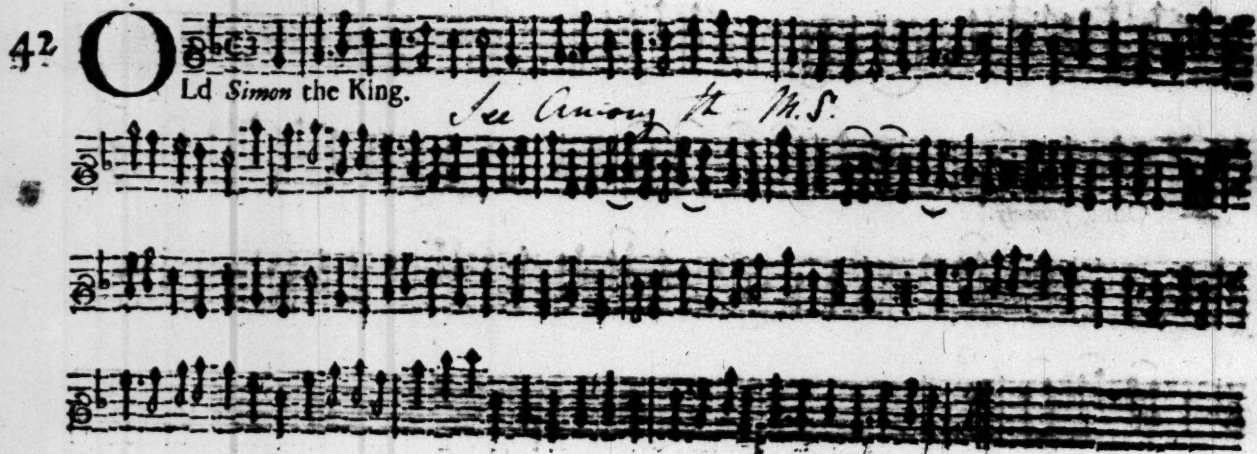 42
OLd Simon the King.
See Among the M.S.